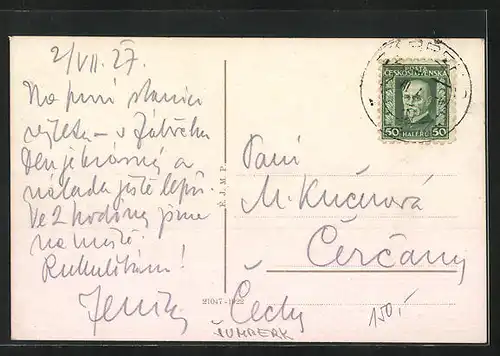 2/VII. 27.
Na první stanici
výletu – v Zábřehu
Den je krásný a
nálada ještě lepší.
Ve 2 hodiny jsme
na místě.
Rukulíbám!
Jeník
POŠTA
ČESKOSLOVENSKÁ
50 HALÉŘŮ 50
Paní
M. Kučerová
Čerčany
Čechy
E. J. M. P.
21047-1922
ŠUMBERK
150,-